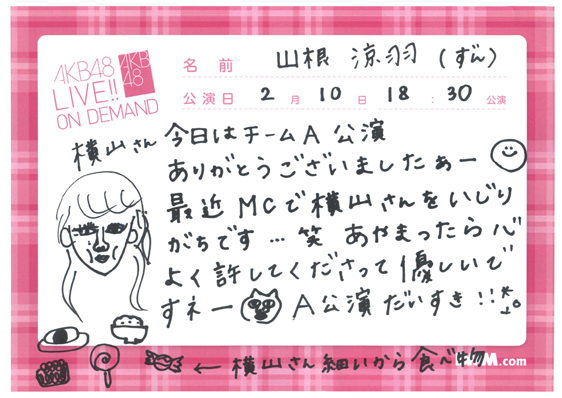 AKB48
LIVE!!
ON DEMAND
AKB
48
名前 山根 涼羽 (ずん)
公演日 2月10日 18:30公演
横山さん
今日はチームA 公演
ありがとうございましたぁー
最近 MCで横山さんをいじり
がちです…笑 あやまったら心
よく許してくださって優しいで
すネー A公演 だいすき!!
← 横山さん細いから食べ物
.com